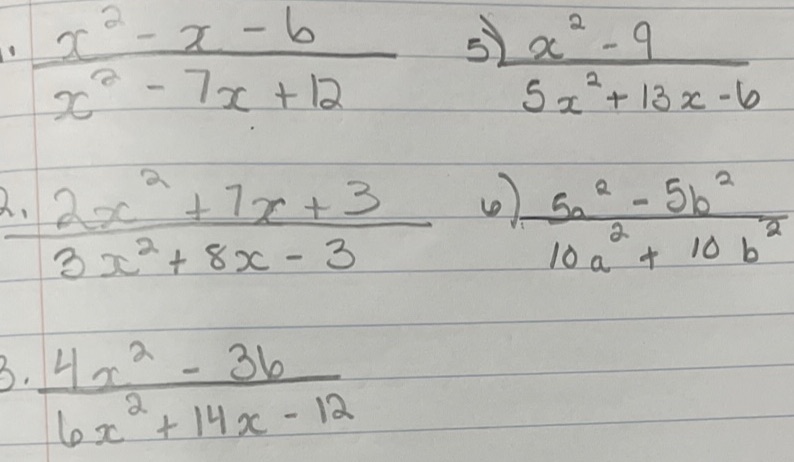 1. x² - x - 6
x² - 7x + 12
5) x² - 9
5x² + 13x - 6
2. 2x² + 7x + 3
3x² + 8x - 3
6) 5a² - 5b²
10a² + 10b²
3. 4x² - 36
6x² + 14x - 12